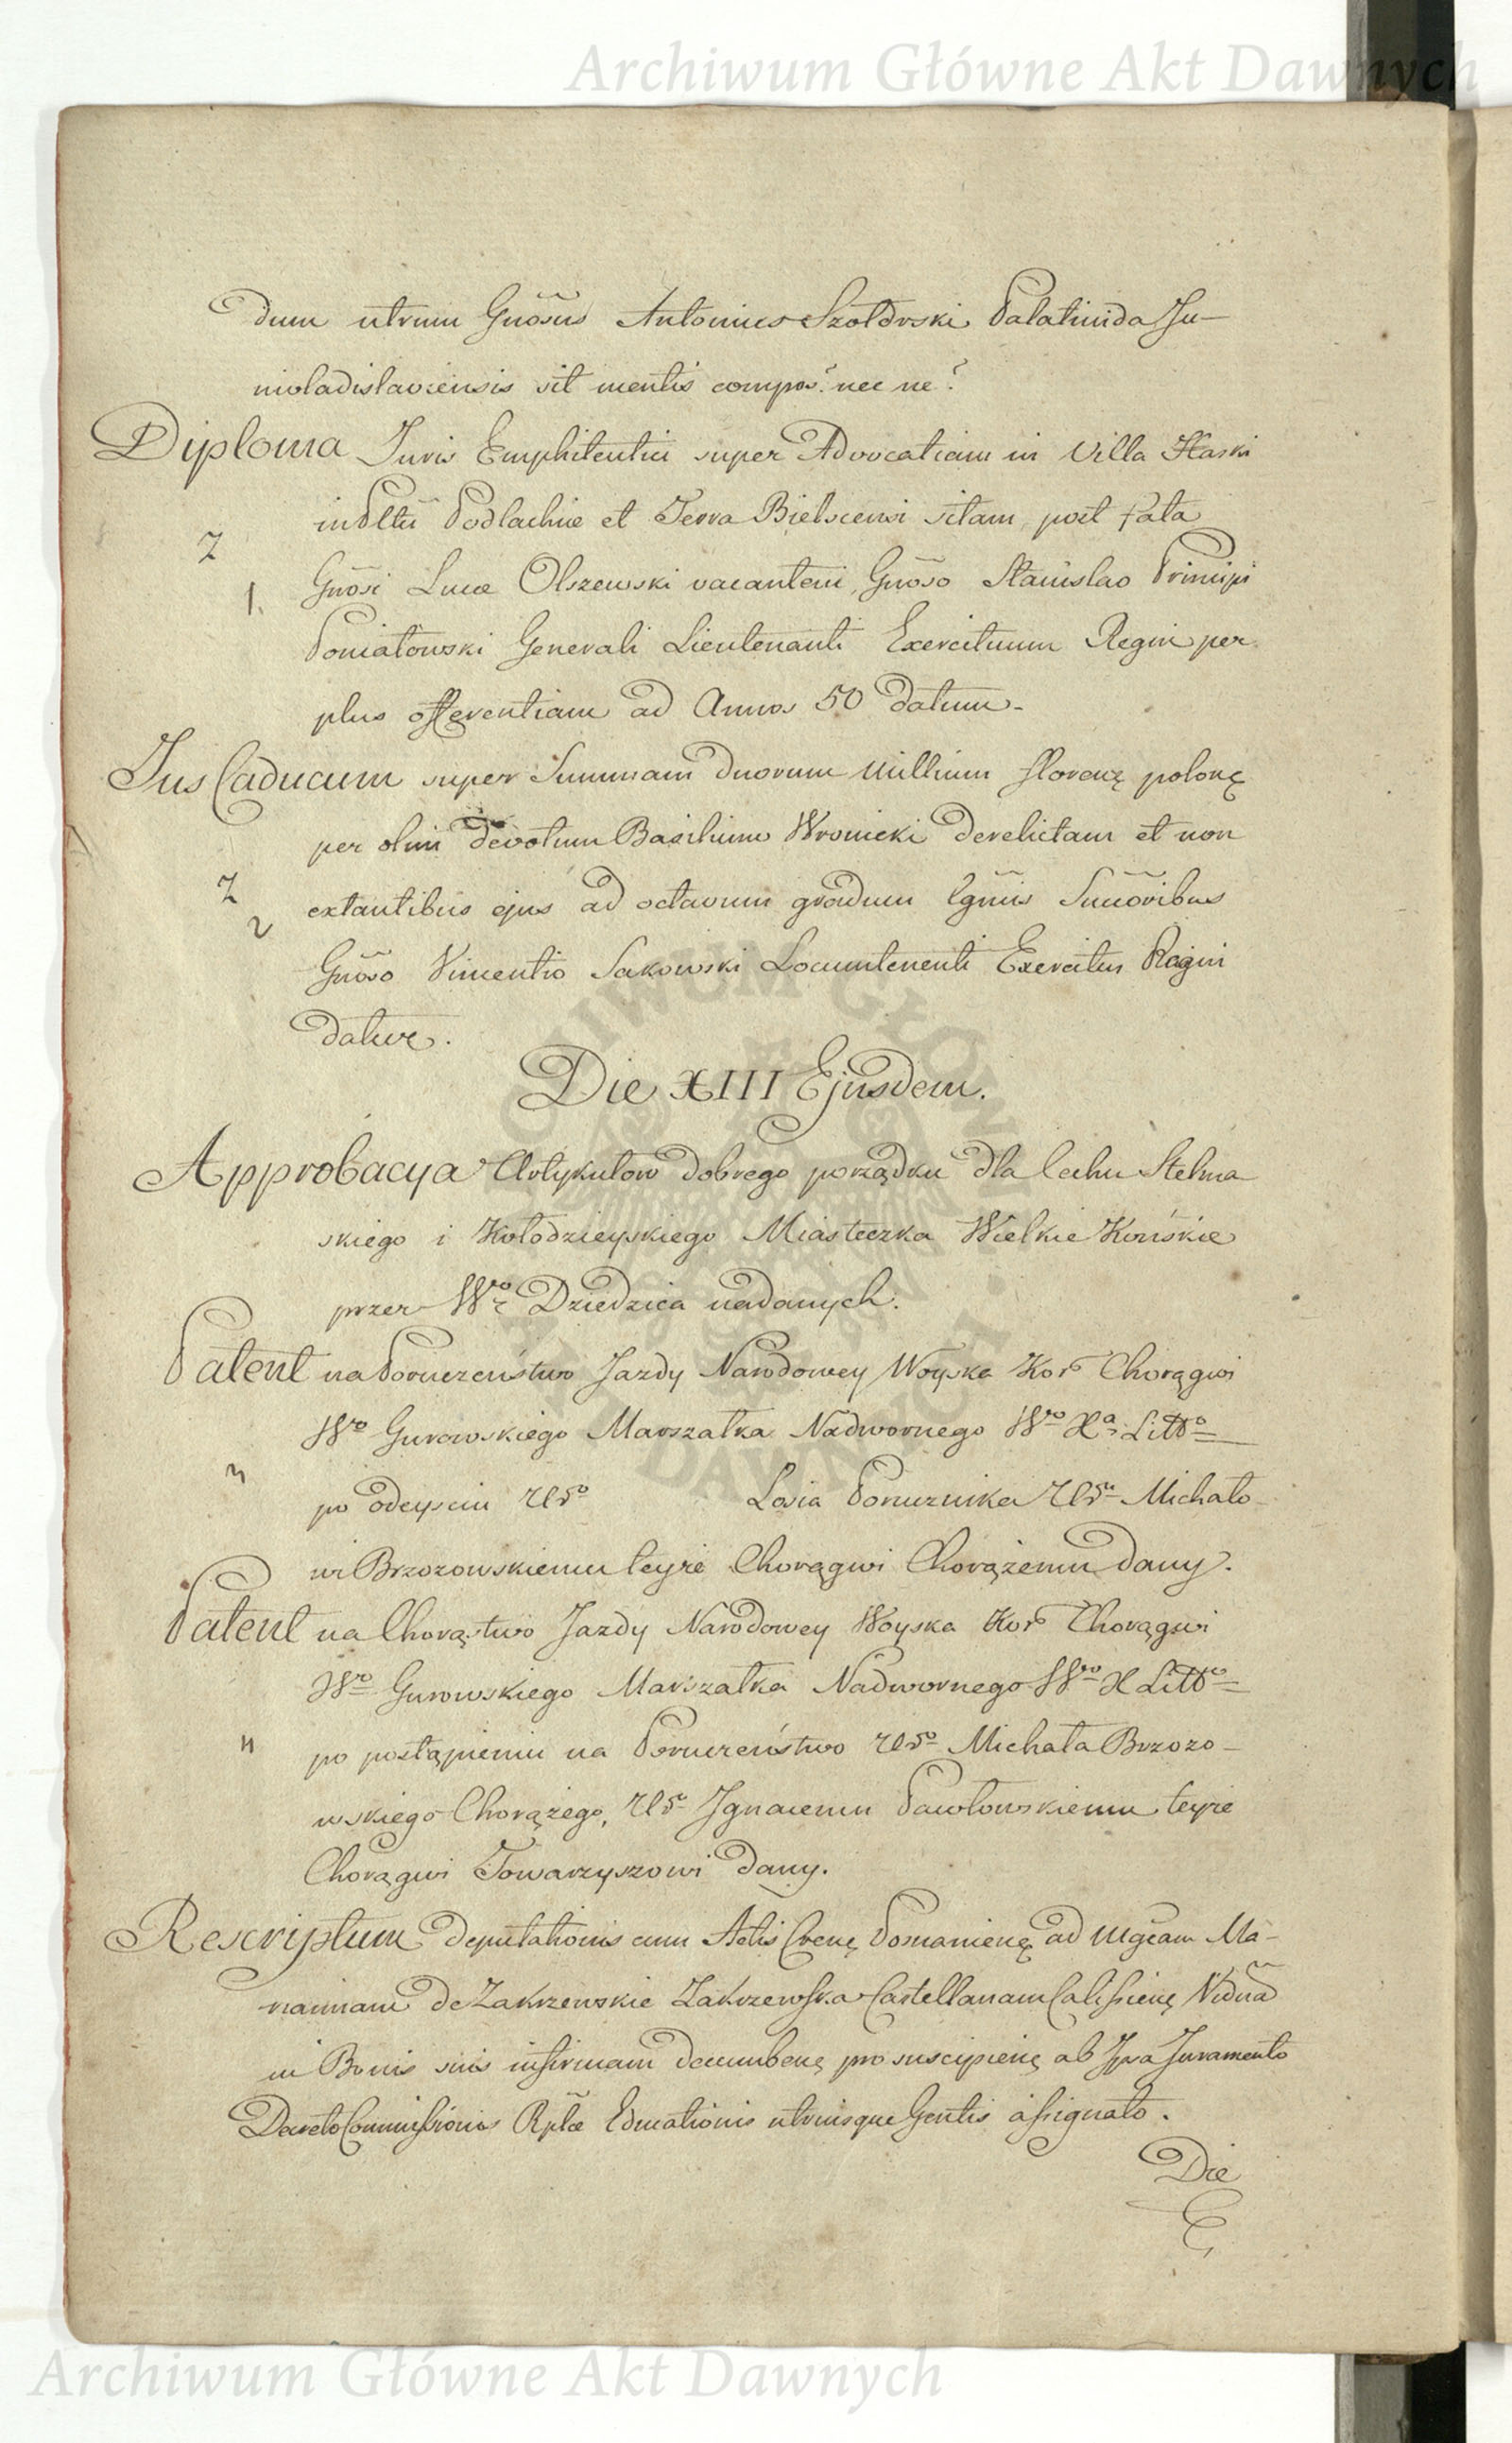 Archiwum Główne Akt Dawnych
dum utrum Gnõsus Antonius Szołdrski Palatinida Ju-
nivladislaviensis sit mentis compos? nec ne?
Diploma Juris Emphiteutici super Advocatiam in Villa Haski
in Pttu Podlachiæ et Terra Bielscensi sitam, post fata
Z
1. Gnõsi Lucæ Olszewski vacantem, Gnõso Stanislao Principi
Poniatowski Generali Lieutenanti Exercituum Regni per
plus offerentiam ad Annos 50 datum.
Jus Caducum super Summam duorum Millium florenę polonę
per olim devotum Basilium Wronicki derelictam et non
Z
extantibus ejus ad octavum gradum Lgmis Sucõribus
2
Gnõso Vincentio Sakowski Locumtenenti Exercitus Regni
datur.
Die XIII Ejusdem.
Approbacya Artykułow dobrego porządku dla Cechu Stelma
skiego i Kołodzieyskiego Miasteczka Wielkie Końskie
przez Wgo Dziedzica nadanych.
Patent na Poruczeństwo Jazdy Narodowey Woyska Kor Chorągwi
Wgo Gurowskiego Marszałka Nadwornego Wgo Xa Littgo
3
po odeysciu Urgo Łosia Porucznika Uru Michało-
wi Brzozowskiemu teyże Chorągwi Chorążemu dany.
Patent na Chorąstwo Jazdy Narodowey Woyska Kor Chorągwi
Wgo Gurowskiego Marszałka Nadwornego Wgo X Littgo
4
po postąpieniu na Poruczeństwo Urgo Michała Brzozo-
wskiego Chorążego, Uru Ignacemu Pawłowskiemu teyże
Chorągwi Towarzyszowi dany.
Rescriptum Deputationis cum Actis Crenę Posnanienę ad Mgcam Ma-
riannam de Zakrzewskie Zakrzewska Castellanam Calissienę Viduã
in Bonis suis infirmam decumbenę pro suscipienę ab Ipsa Juramento
Decreto Commissionis Rptæ Educationis utriusque Gentis assignato.
Die
Archiwum Główne Akt Dawnych